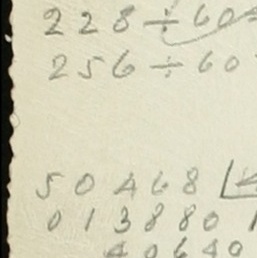 228÷60
256÷60
50468
013880
40640